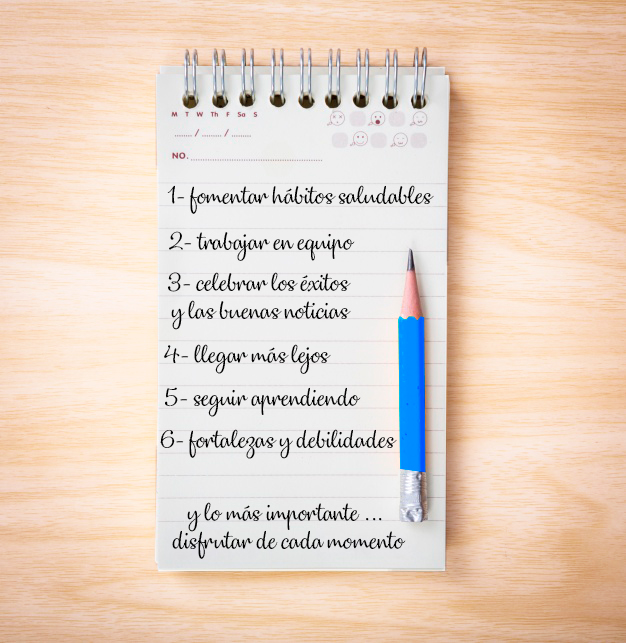 M T W Th F Sa S
........ / ........ / ........
NO. ................................................
1- fomentar hábitos saludables
2- trabajar en equipo
3- celebrar los éxitos
y las buenas noticias
4- llegar más lejos
5- seguir aprendiendo
6- fortalezas y debilidades
y lo más importante ...
disfrutar de cada momento